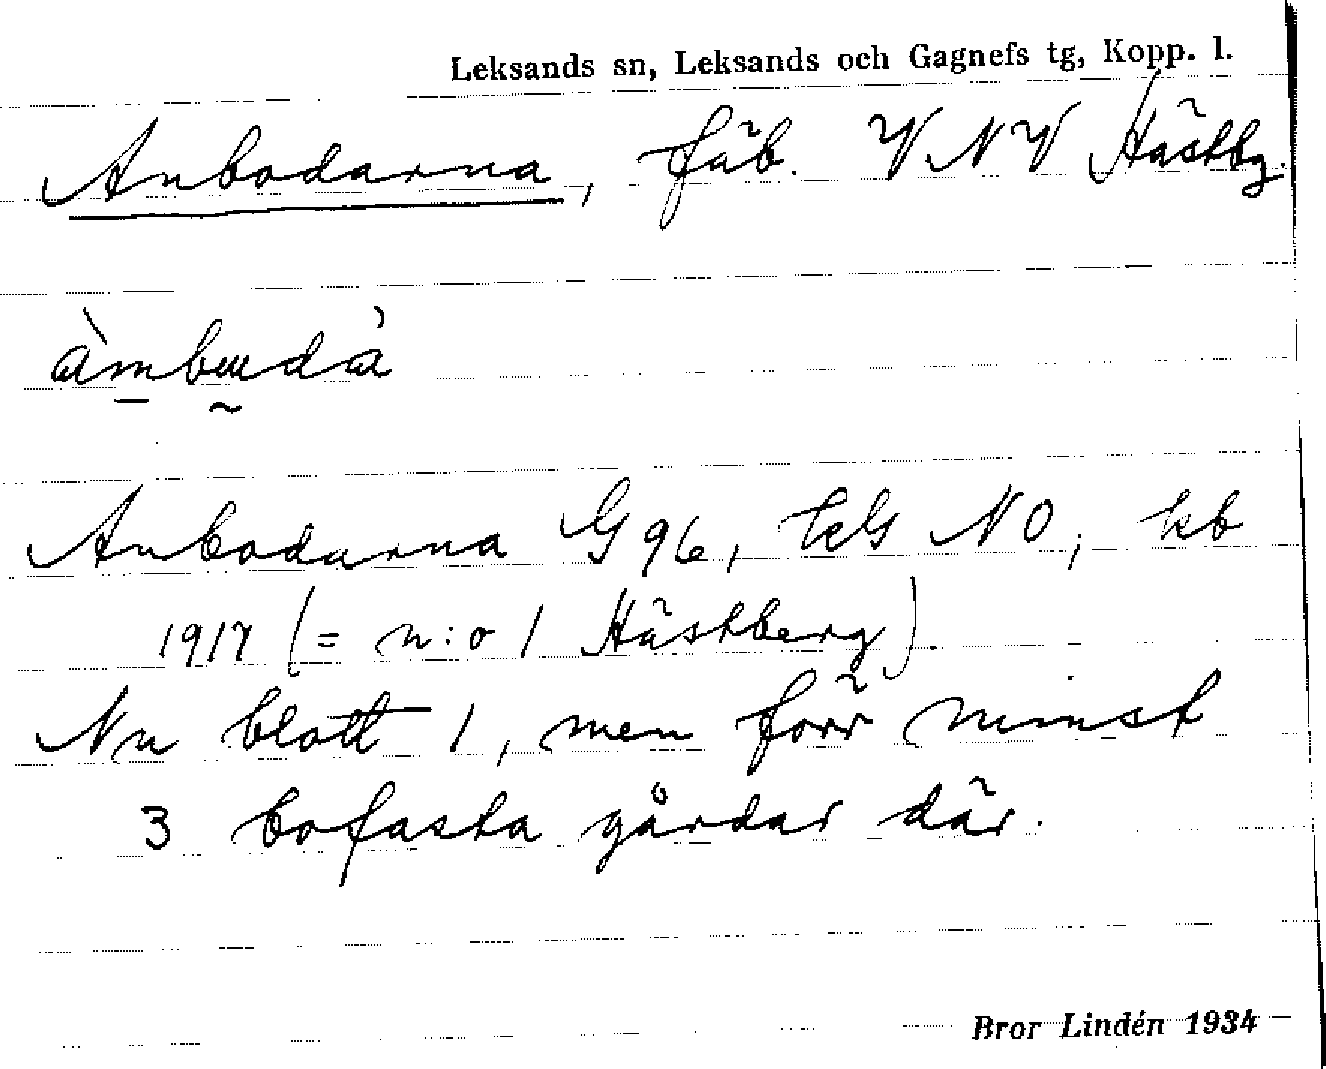 Leksands sn, Leksands och Gagnefs tg, Kopp. l.
Anbodarna, fäb. VNV Hästbg.
Anbodarna G96, NO, kb
1917 (= n:o 1 Hästberg).
Nu blott 1, men förr minst
3 bofasta gårdar där.
Bror Lindén 1934